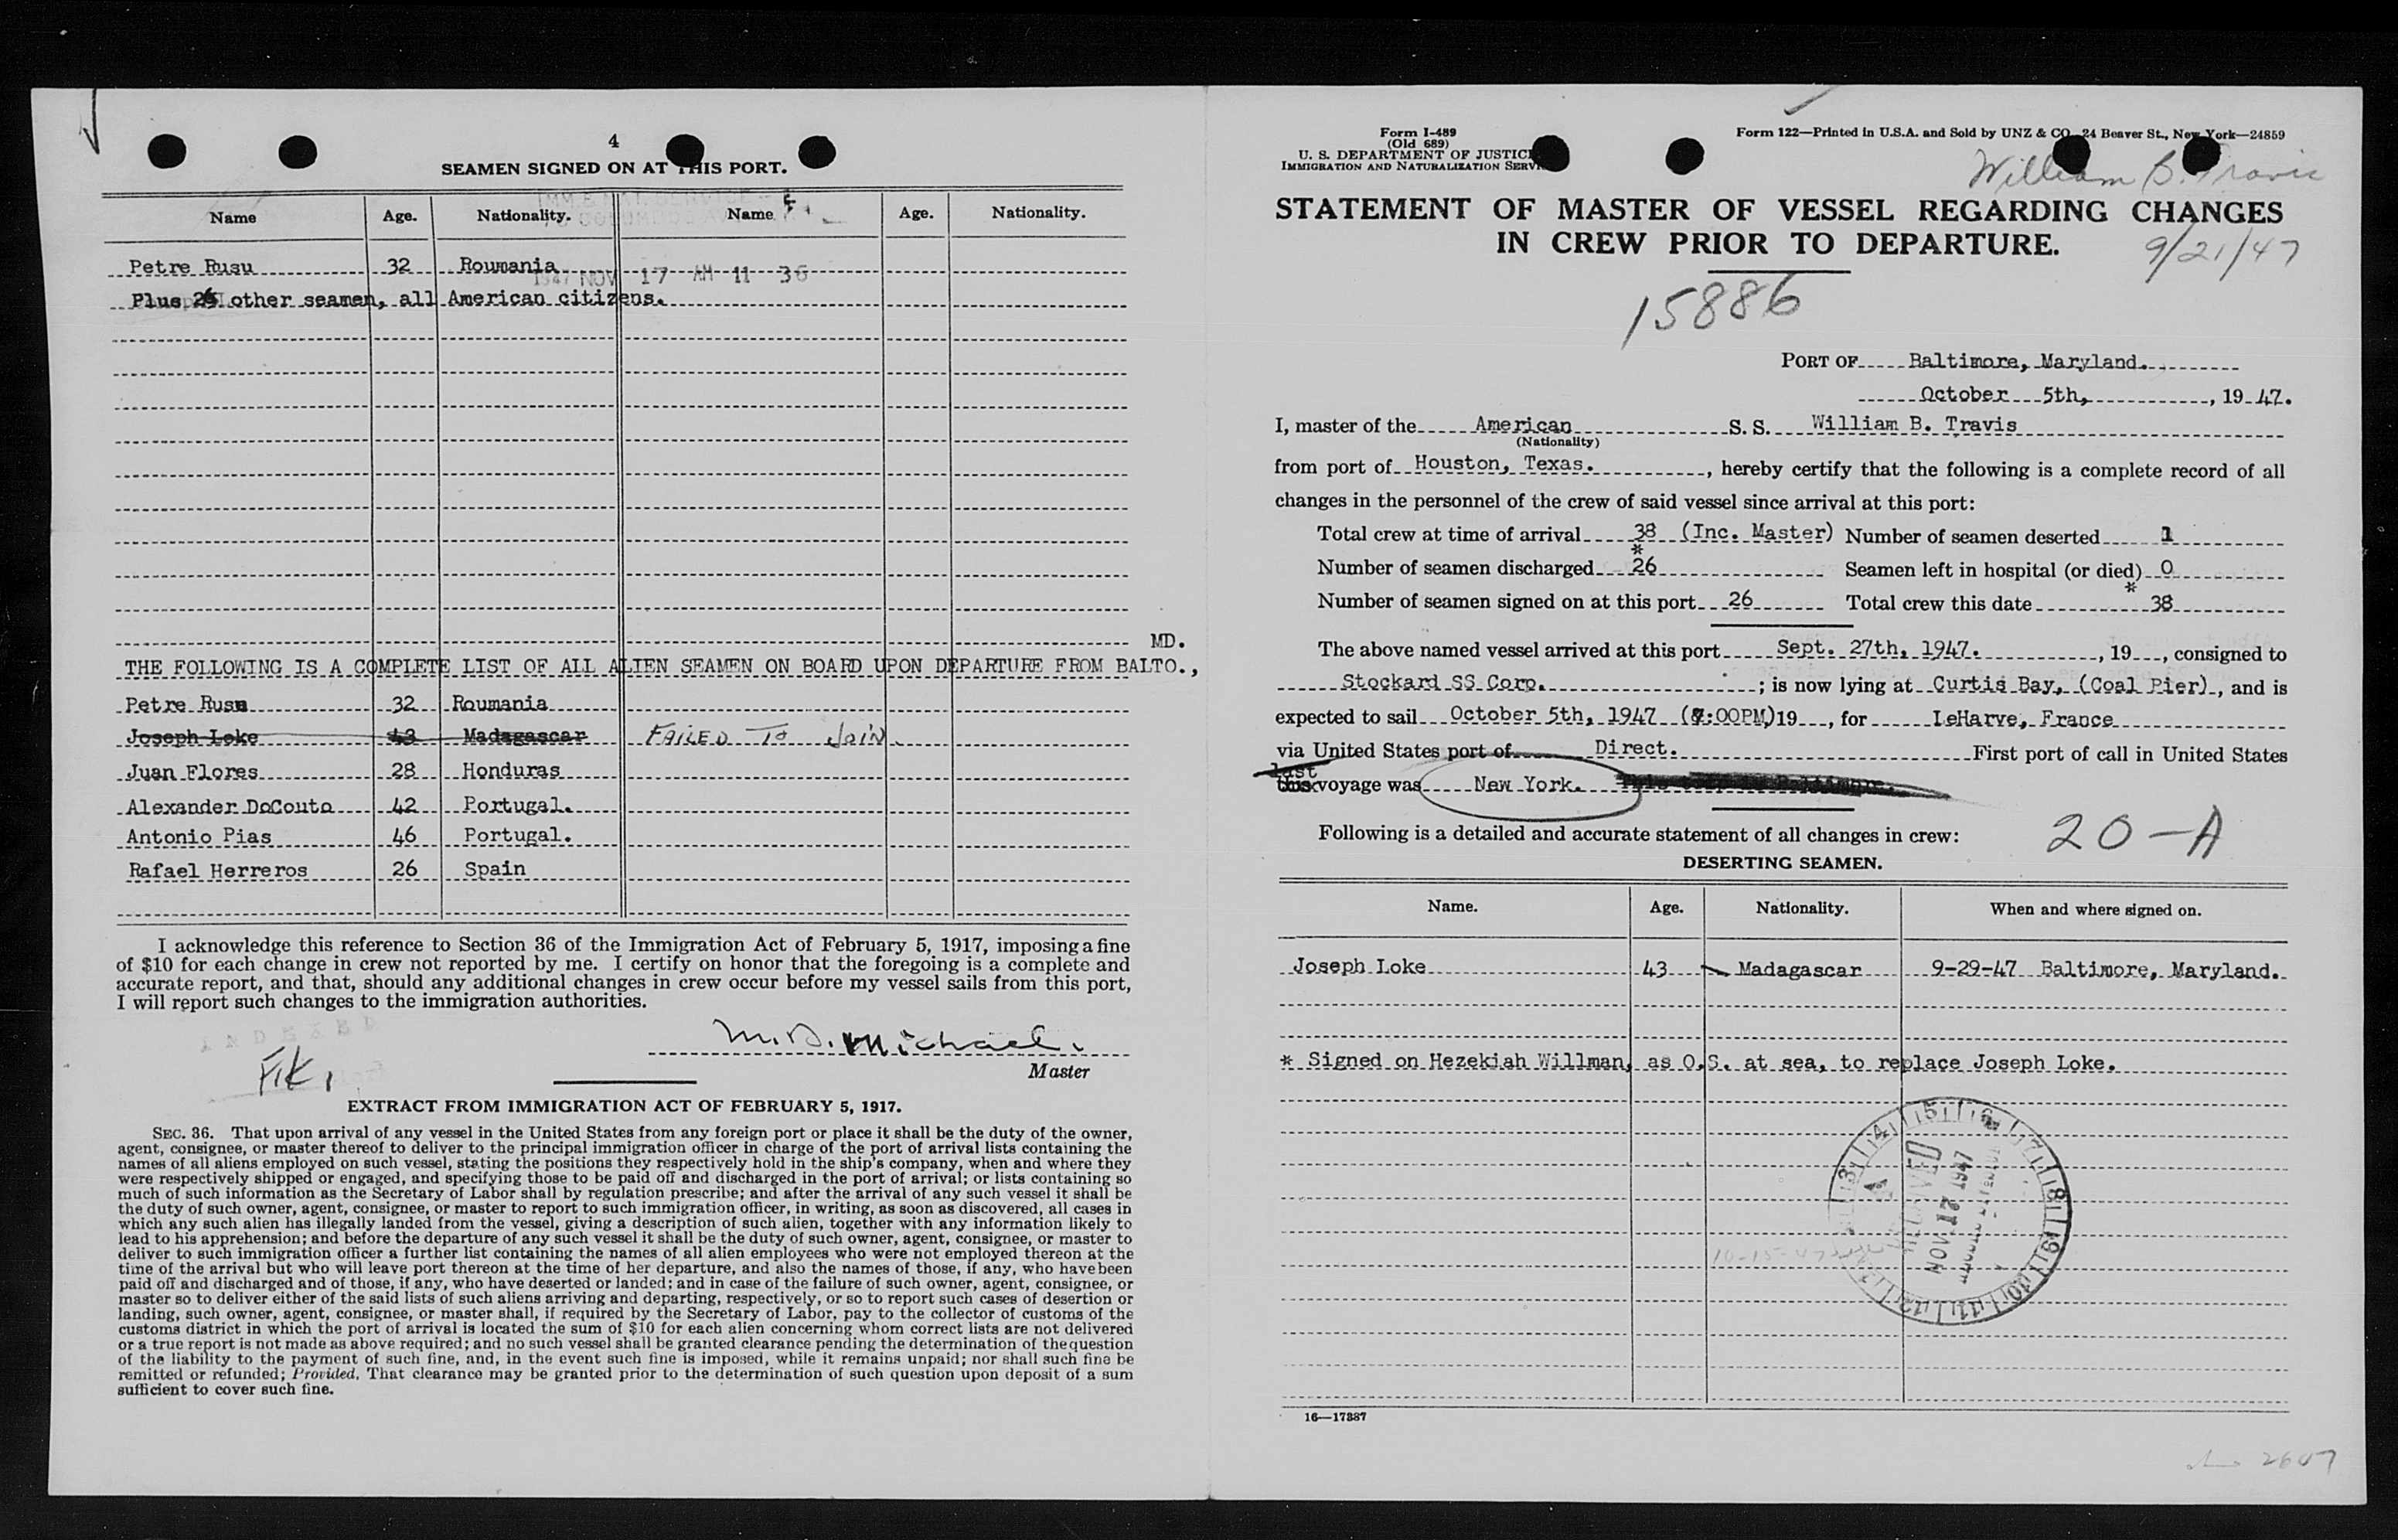 4
SEAMEN SIGNED ON AT THIS PORT.
Name Age. Nationality. Name Age. Nationality.
Petre Rusu 32 Roumania
1947 NOV 17 AM 11 36
Plus other seamen, all American citizens.
MD.
THE FOLLOWING IS A COMPLETE LIST OF ALL ALIEN SEAMEN ON BOARD UPON DEPARTURE FROM BALTO.,
Petre Rusu 32 Roumania
Joseph Loke 43 Madagascar FAILED TO JOIN.
Juan Flores 28 Honduras
Alexander DoCouto 42 Portugal.
Antonio Pias 46 Portugal.
Rafael Herreros 26 Spain
I acknowledge this reference to Section 36 of the Immigration Act of February 5, 1917, imposing a fine
of $10 for each change in crew not reported by me. I certify on honor that the foregoing is a complete and
accurate report, and that, should any additional changes in crew occur before my vessel sails from this port,
I will report such changes to the immigration authorities.
INDEXED
M. D. Michael.
Master
EXTRACT FROM IMMIGRATION ACT OF FEBRUARY 5, 1917.
SEC. 36. That upon arrival of any vessel in the United States from any foreign port or place it shall be the duty of the owner,
agent, consignee, or master thereof to deliver to the principal immigration officer in charge of the port of arrival lists containing the
names of all aliens employed on such vessel, stating the positions they respectively hold in the ship's company, when and where they
were respectively shipped or engaged, and specifying those to be paid off and discharged in the port of arrival; or lists containing so
much of such information as the Secretary of Labor shall by regulation prescribe; and after the arrival of any such vessel it shall be
the duty of such owner, agent, consignee, or master to report to such immigration officer, in writing, as soon as discovered, all cases in
which any such alien has illegally landed from the vessel, giving a description of such alien, together with any information likely to
lead to his apprehension; and before the departure of any such vessel it shall be the duty of such owner, agent, consignee, or master to
deliver to such immigration officer a further list containing the names of all alien employees who were not employed thereon at the
time of the arrival but who will leave port thereon at the time of her departure, and also the names of those, if any, who have been
paid off and discharged and of those, if any, who have deserted or landed; and in case of the failure of such owner, agent, consignee, or
master so to deliver either of the said lists of such aliens arriving and departing, respectively, or so to report such cases of desertion or
landing, such owner, agent, consignee, or master shall, if required by the Secretary of Labor, pay to the collector of customs of the
customs district in which the port of arrival is located the sum of $10 for each alien concerning whom correct lists are not delivered
or a true report is not made as above required; and no such vessel shall be granted clearance pending the determination of the question
of the liability to the payment of such fine, and, in the event such fine is imposed, while it remains unpaid; nor shall such fine be
remitted or refunded; Provided, That clearance may be granted prior to the determination of such question upon deposit of a sum
sufficient to cover such fine.
Form I-489
(Old 689)
U. S. DEPARTMENT OF JUSTICE
IMMIGRATION AND NATURALIZATION SERVICE
Form 122—Printed in U.S.A. and Sold by UNZ & CO. 24 Beaver St., New York—24859
William B. Travis
STATEMENT OF MASTER OF VESSEL REGARDING CHANGES
IN CREW PRIOR TO DEPARTURE.
9/21/47
15886
PORT OF Baltimore, Maryland.
October 5th, , 19 47.
I, master of the American S. S. William B. Travis
(Nationality)
from port of Houston, Texas. , hereby certify that the following is a complete record of all
changes in the personnel of the crew of said vessel since arrival at this port:
Total crew at time of arrival 38 (Inc. Master) Number of seamen deserted 1
*
Number of seamen discharged 26 Seamen left in hospital (or died) 0
*
Number of seamen signed on at this port 26 Total crew this date 38
The above named vessel arrived at this port Sept. 27th, 1947. , 19 , consigned to
Stockard SS Corp. ; is now lying at Curtis Bay, (Coal Pier) , and is
expected to sail October 5th, 1947 (7:00PM) 19 , for LeHarve, France
via United States port of Direct. First port of call in United States
last
this voyage was New York.
Following is a detailed and accurate statement of all changes in crew:
20-A
DESERTING SEAMEN.
Name. Age. Nationality. When and where signed on.
Joseph Loke 43 Madagascar 9-29-47 Baltimore, Maryland.
* Signed on Hezekiah Willman, as O.S. at sea, to replace Joseph Loke.
RECEIVED
NOV 17 1947
16—17887